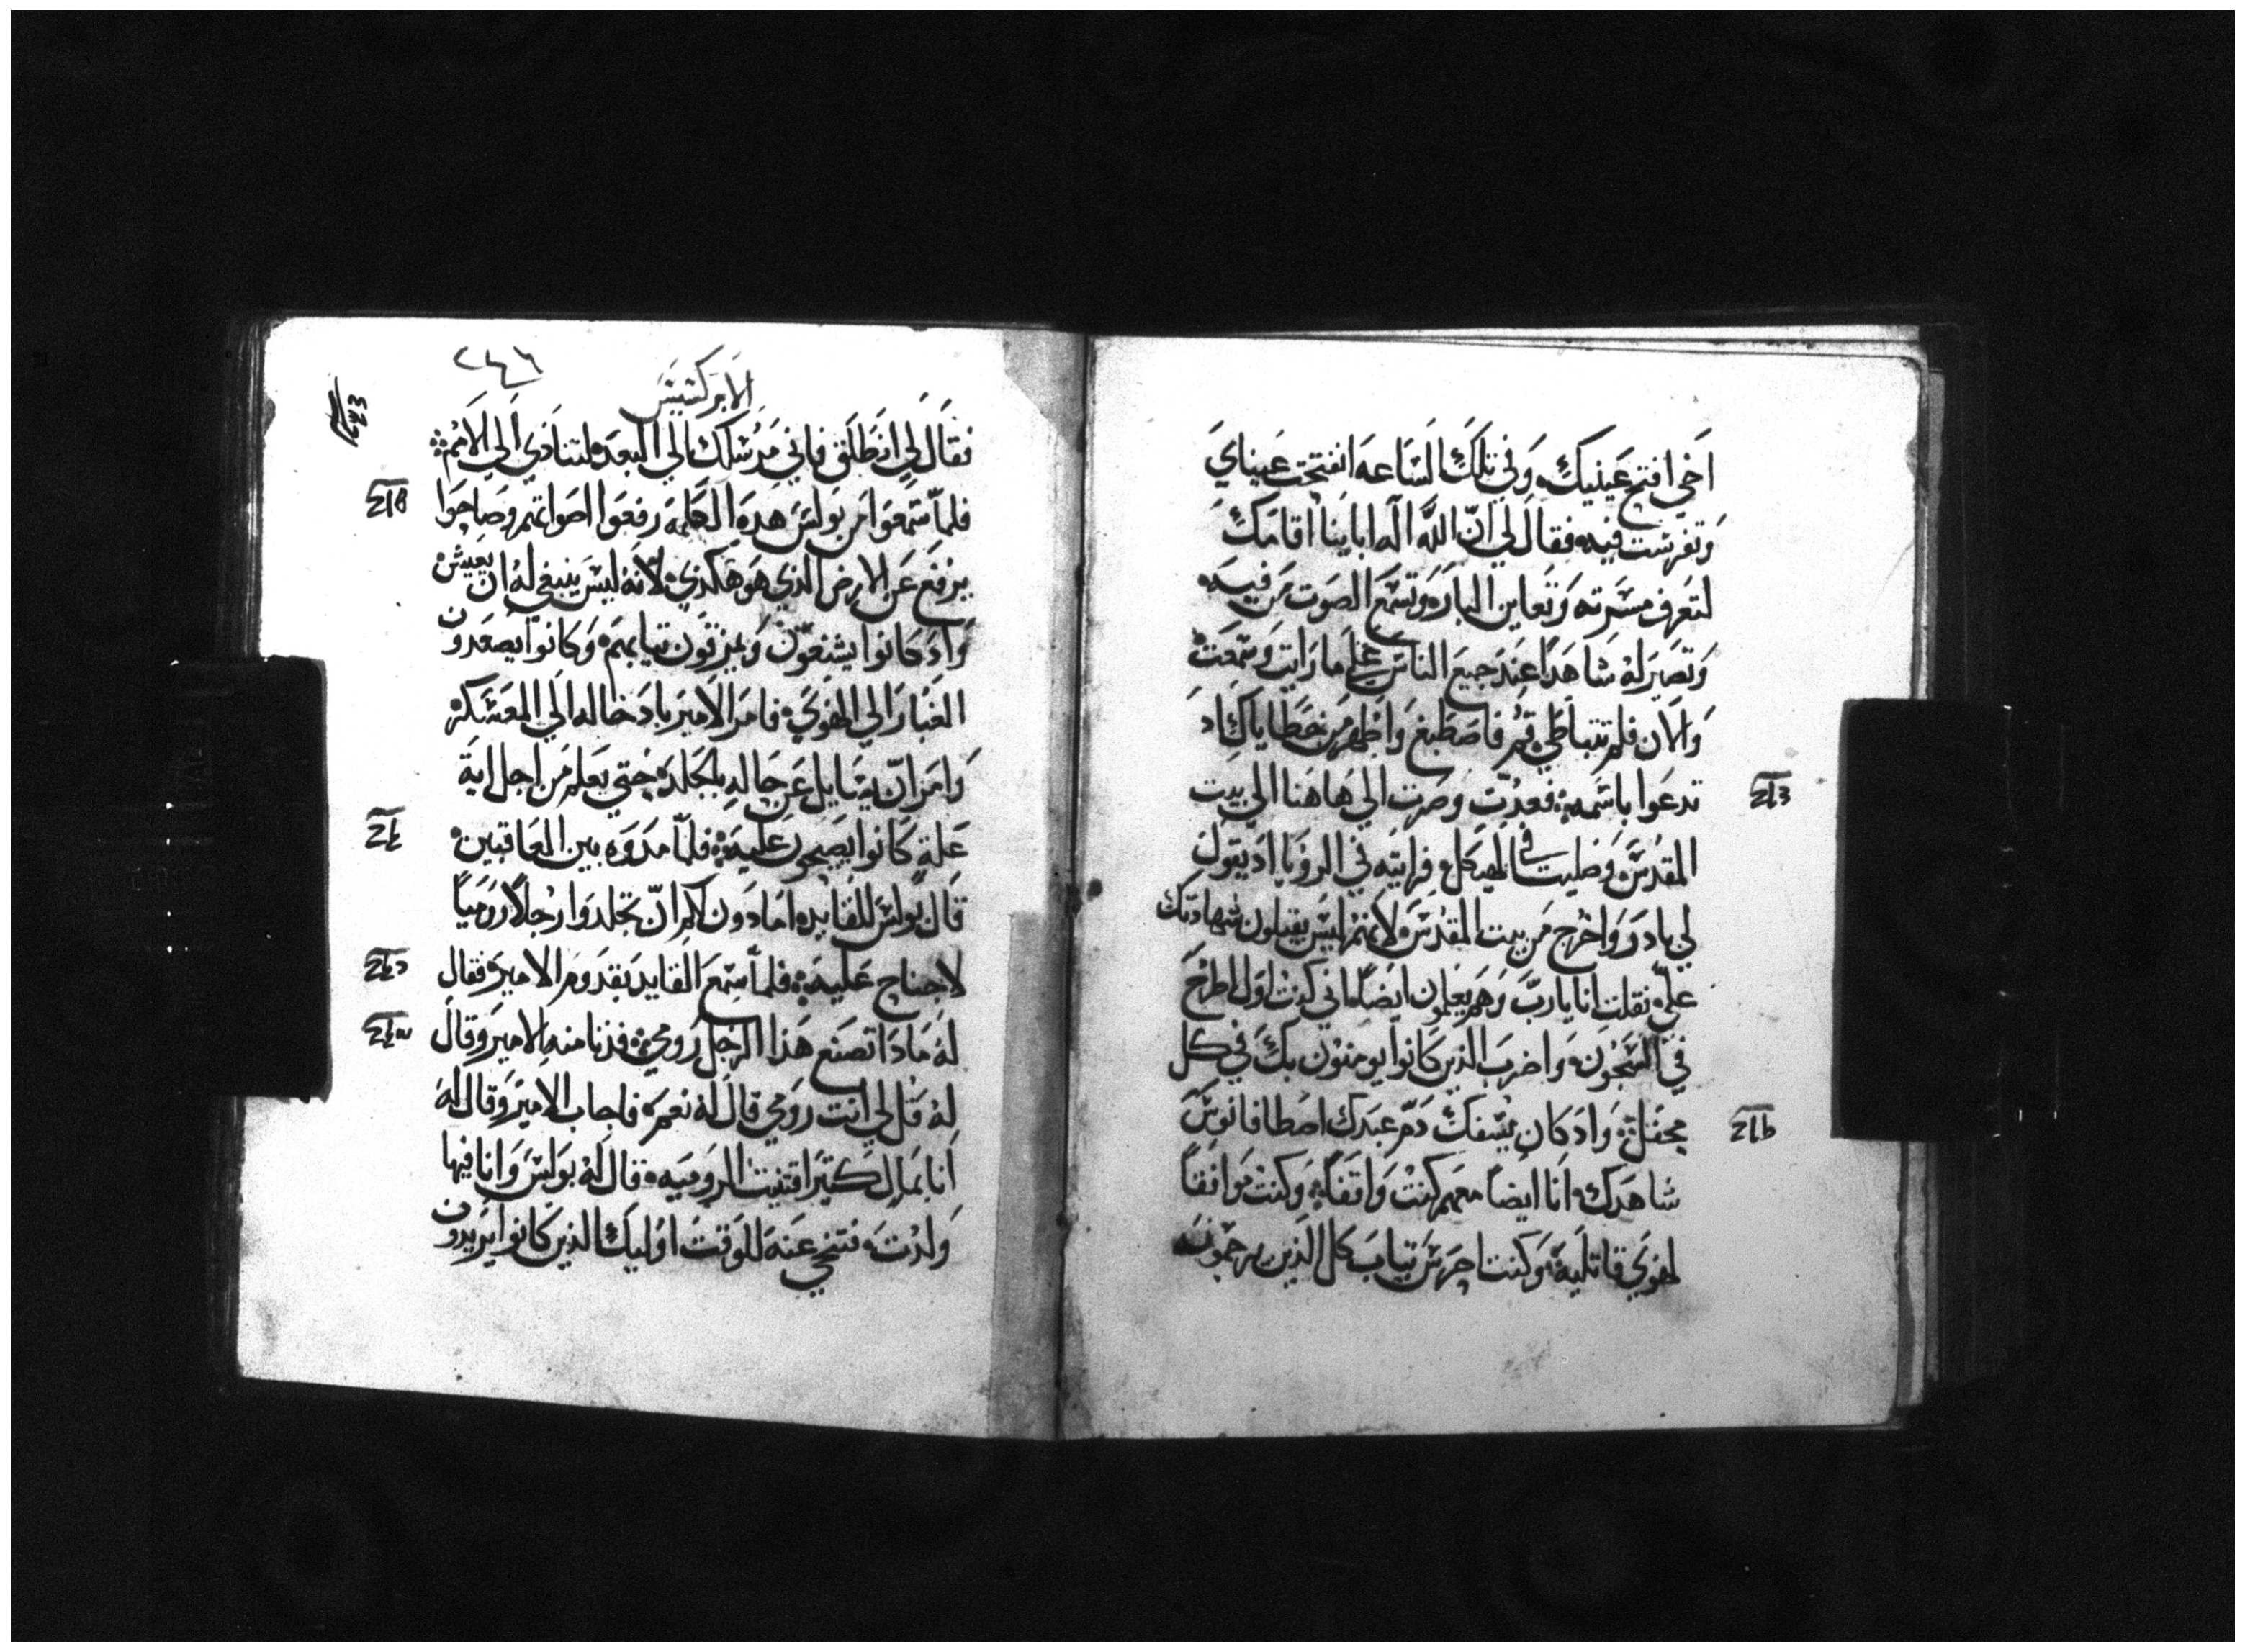 اخي افتح عينيك وفي تلك الساعه انفتحت عيناي
وتفرست فيه فقال لي ان الله اله اباينا اقامك
لتعرف مسرته وتعاين الباره وتسمع الصوت من فيه
وتصير له شاهدا عند جميع الناس علي ما رايت وسمعت
والان فلم تتباطي قم فاصطبغ واطهر من خطاياك اد
تدعوا باسمه فعدت وصرت الي هاهنا الي بيت
المقدس وصليت في الهيكل فرايته في الرويا اد يقول
لي بادر واخرج من بيت المقدس لانهم ليس يقبلون شهادتك
علي فقلت انا يارب وهم يعلمون ايضا اني كنت اول اطرح
في السجون واضرب الذين كانوا يومنون بك في كل
محفل واد كان يسفك دم عبدك اصطافانوس
شاهدك انا ايضا معهم كنت واقفا وكنت موافقا
لهوي قاتليه وكنت احرس تياب كل الذين يرجمونه
٢٤٦
الابركسيس
فقال لي انطلق فاني مرسلك الي البعده لتنادي الي الامم
فلما سمعوا من بولس هده الكلمه رفعوا اصواتهم وصاحوا
يرفع عن الارض الذي هو هكذي لانه ليس ينبغي له ان يعيش
واد كانوا يشنعون ويمزقون تيابهم وكانوا يصعدون
الغبار الي الهوي فامر الامير بادخاله الي المعسكر
وامر ان يسايل عن حاله بالجلد حتي يعلم من اجل اية
علة كانوا يصيحون عليه فلما مدوه بين المعاقبين
قال بولس للقايد امادون لكم ان تجلدوا رجلا روميا
لاجناح عليه فلما سمع القايد تقدم الامير فقال
له مادا تصنع هذا الرجل رومي فدنا منه الامير وقال
له قل لي انت رومي قال له نعم فاجاب الامير وقال له
انا بمال كتير اقتنيت الروميه قال له بولس وانا فيها
ولدت فتنحي عنه للوقت اوليك الذين كانوا يريدون